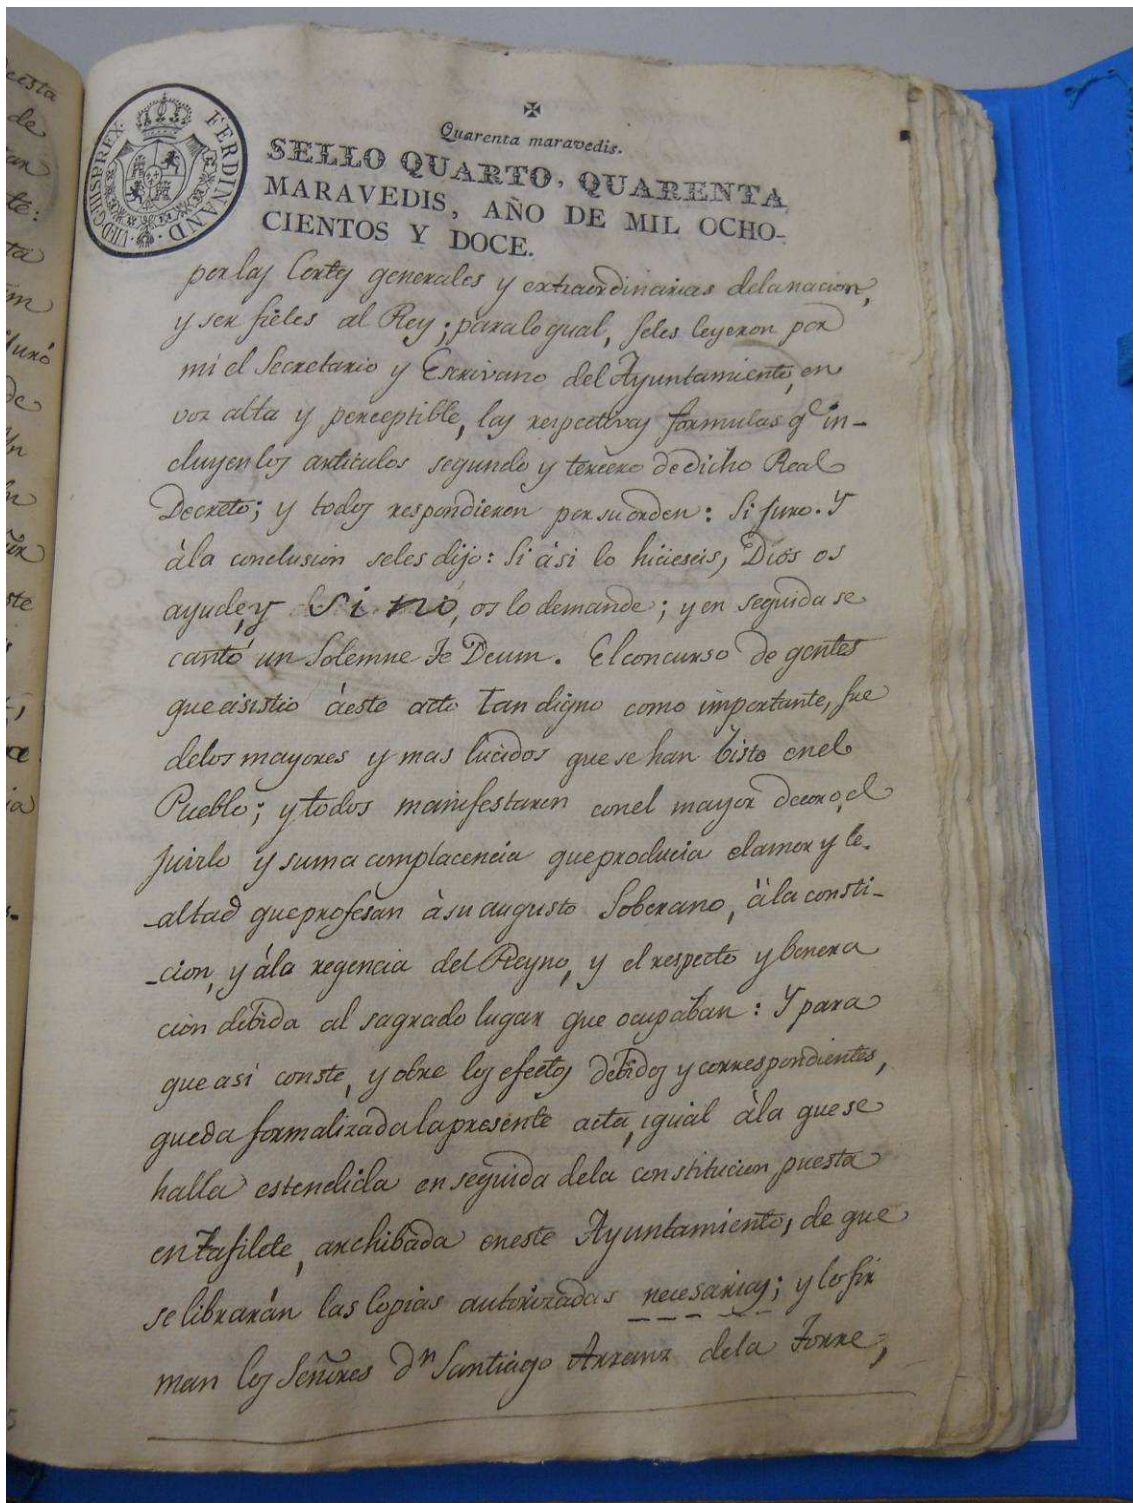 ✠
Quarenta maravedis.
SELLO QUARTO, QUARENTA
MARAVEDIS, AÑO DE MIL OCHO-
CIENTOS Y DOCE.
FERDINAND·VII·D·G·HISP·REX·
por las Cortes generales y extraordinarias delanacion,
y ser fieles al Rey; paralo qual, seles leyeron por
mi el Secretario y Escrivano del Ayuntamiento, en
voz alta y perceptible, las respectivas formulas q.e in-
cluyen los articulos segundo y tercero de dicho Real
Decreto; y todos respondieron por su orden: Si juro. Y
àla conclusion seles dijo: Si àsi lo hicieseis, Dios os
ayude, y Si nó, os lo demande; y en seguida se
cantó un Solemne Te Deum. El concurso de gentes
que asistio àeste acto tan digno como importante, fue
delos mayores y mas lucidos que se han bisto en el
Pueblo; y todos manifestaron con el mayor decoro, el
juvilo y suma complacencia que producia el amor y le-
-altad que profesan à su augusto Soberano, àla consti-
-cion, y àla regencia del Reyno, y el respecto y benera
cion debida al sagrado lugar que ocupaban: Y para
que asi conste, y obre los efectos debidos y correspondientes,
queda formalizada la presente acta, igual àla que se
halla estendida en seguida dela constitucion puesta
en tafilete, archibada en este Ayuntamiento, de que
se librarán las Copias autorizadas necesarias; y lo fir
man los Señores Dn Santiago Arranz dela Torre,
cista
de
tan
te:
ta
Juró
de
Un
ste